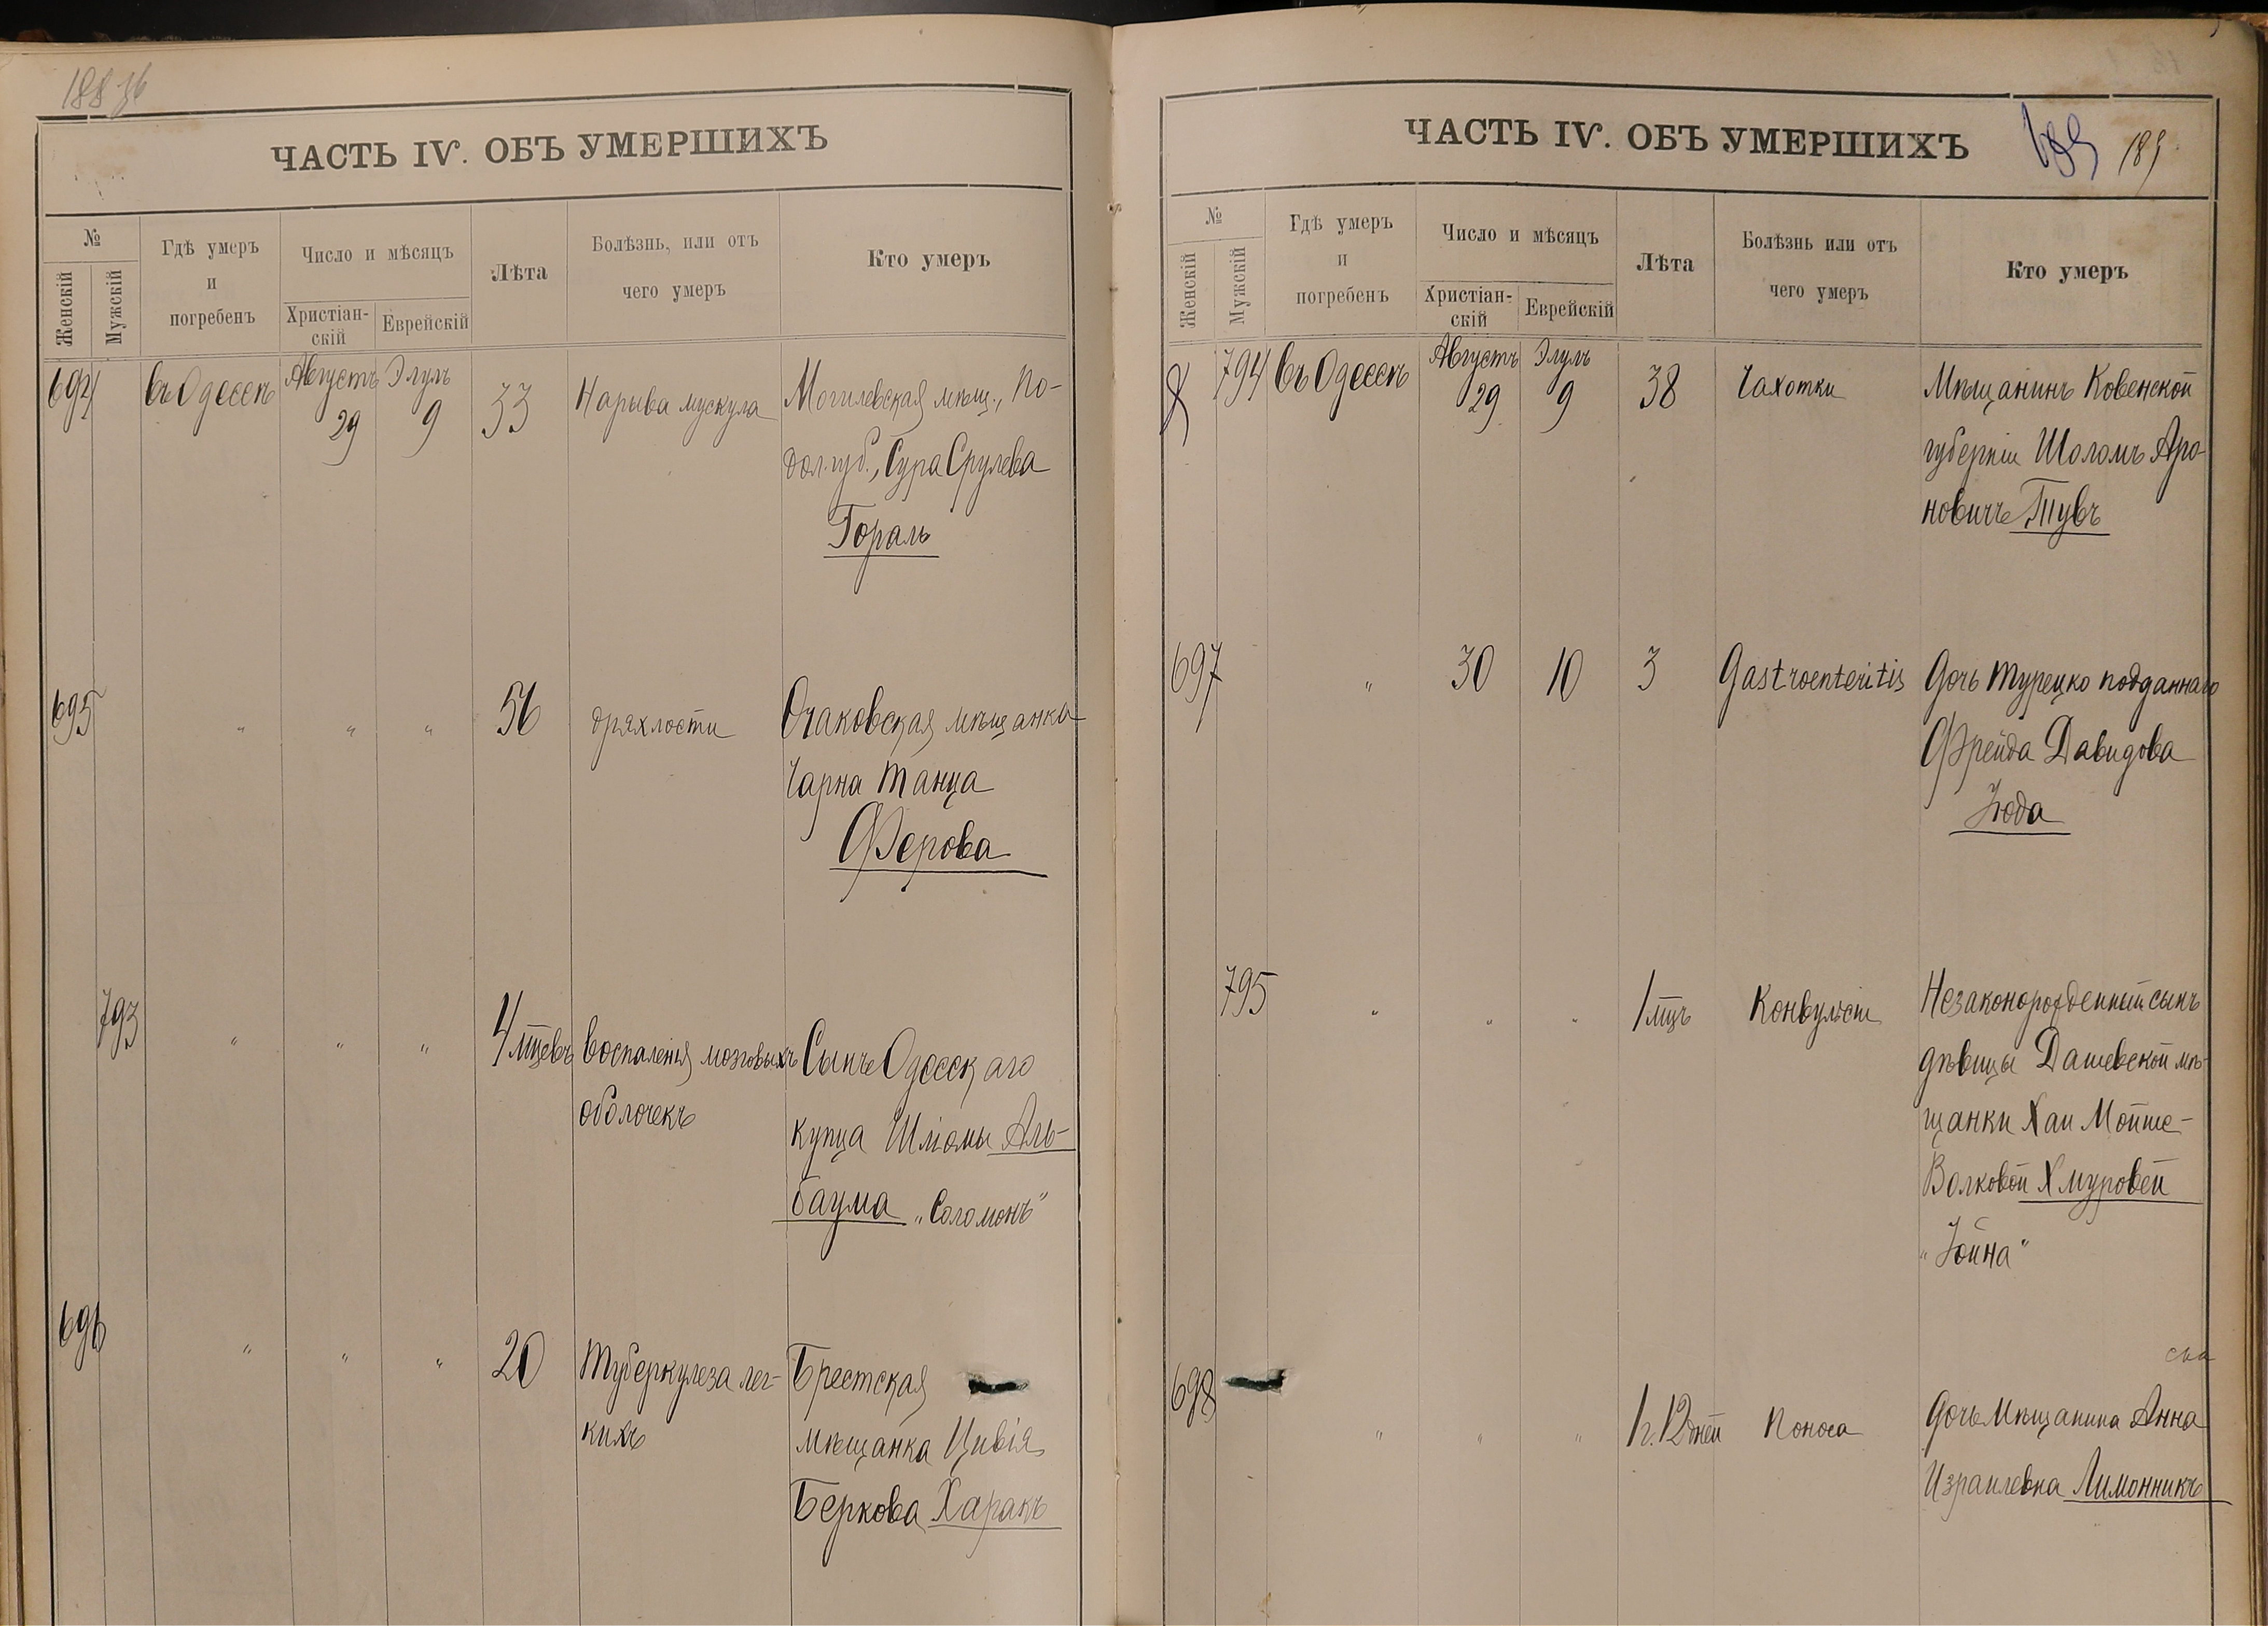 188 об
ЧАСТЬ IV. ОБЪ УМЕРШИХЪ
№
Женскій
Мужскій
Гдѣ умеръ
и
погребенъ
Число и мѣсяцъ
Христіан-
скій
Еврейскій
Лѣта
Болѣзнь, или отъ
чего умеръ
Кто умеръ
694 въ Одессѣ Августъ 29 Элулъ 9 33 Нарыва мускула Могилевская мѣщ., По-
дол. губ., Сура Срулева
Гораль
695 " " " 56 дряхлости Очаковская мѣщанка
Чарна Танца
Ферова
793 " " " 4 мцевъ Воспаленія мозговыхъ Сынъ Одесскаго
оболочекъ купца Шлiомы Аль-
баума „Соломонъ"
696 " " " 20 Туберкулеза лег- Брестская
кихъ мѣщанка Цивія
Беркова Харакъ
ЧАСТЬ IV. ОБЪ УМЕРШИХЪ
189
№
Женскій
Мужскій
Гдѣ умеръ
и
погребенъ
Число и мѣсяцъ
Христіан-
скій
Еврейскій
Лѣта
Болѣзнь или отъ
чего умеръ
Кто умеръ
794 въ Одессѣ Августъ 29 Элулъ 9 38 Чахотки Мѣщанинъ Ковенской
губерніи Шоломъ Аро-
новичъ Тувъ
697 " 30 10 3 Gastroenteritis Дочь турецко подданнаго
Фрейда Давидова
Юда
795 " " " 1 мцъ Конвульсіи Незаконорожденный сынъ
дѣвицы Дашевской мѣ-
щанки Хаи Мойше-
Волковой Хмуровой
"Іойна"
698 " " " 1 г. 12 дней Поноса Дочь мѣщанина Анна
Израилевна Лимонникъ